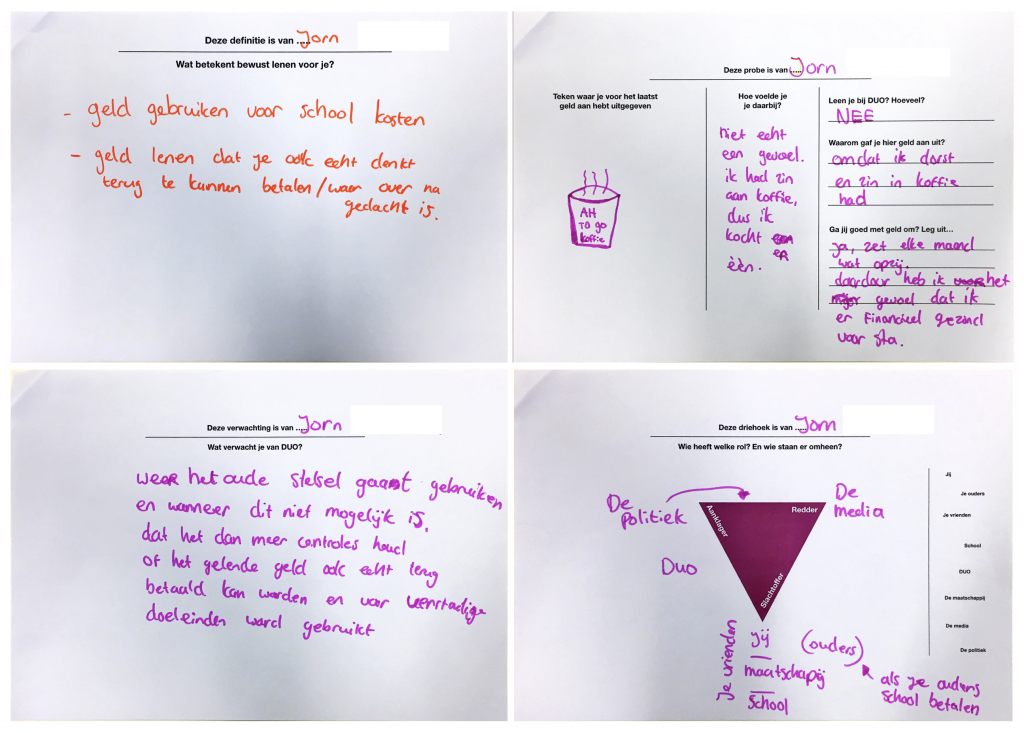 Deze definitie is van ..... Jorn
Wat betekent bewust lenen voor je?
- geld gebruiken voor school kosten
- geld lenen dat je ook echt denkt
terug te kunnen betalen/waar over na
gedacht is.
Deze probe is van ..... Jorn
Teken waar je voor het laatst
geld aan hebt uitgegeven
AH
TO go
koffie
Hoe voelde je
je daarbij?
niet echt
een gevoel.
ik had zin
aan koffie,
dus ik
kocht
er
èèn.
Leen je bij DUO? Hoeveel?
NEE
Waarom gaf je hier geld aan uit?
omdat ik dorst
en zin in koffie
had
Ga jij goed met geld om? Leg uit…
ja, zet elke maand
wat opzij.
daardoor heb ik het
gevoel dat ik
er financieel gezond
voor sta.
Deze verwachting is van ..... Jorn
Wat verwacht je van DUO?
weer het oude stelsel gaat gebruiken
en wanneer dit niet mogelijk is,
dat het dan meer controles houd
of het gelende geld ook echt terug
betaald kan worden en voor
doeleinden word gebruikt
Deze driehoek is van ..... Jorn
Wie heeft welke rol? En wie staan er omheen?
De
politiek
De
media
Aanklager
Redder
Slachtoffer
Duo
Je vrienden
jij
maatschapij
school
(ouders)
als je ouders
school betalen
Jij
Je ouders
Je vrienden
School
DUO
De maatschappij
De media
De politiek